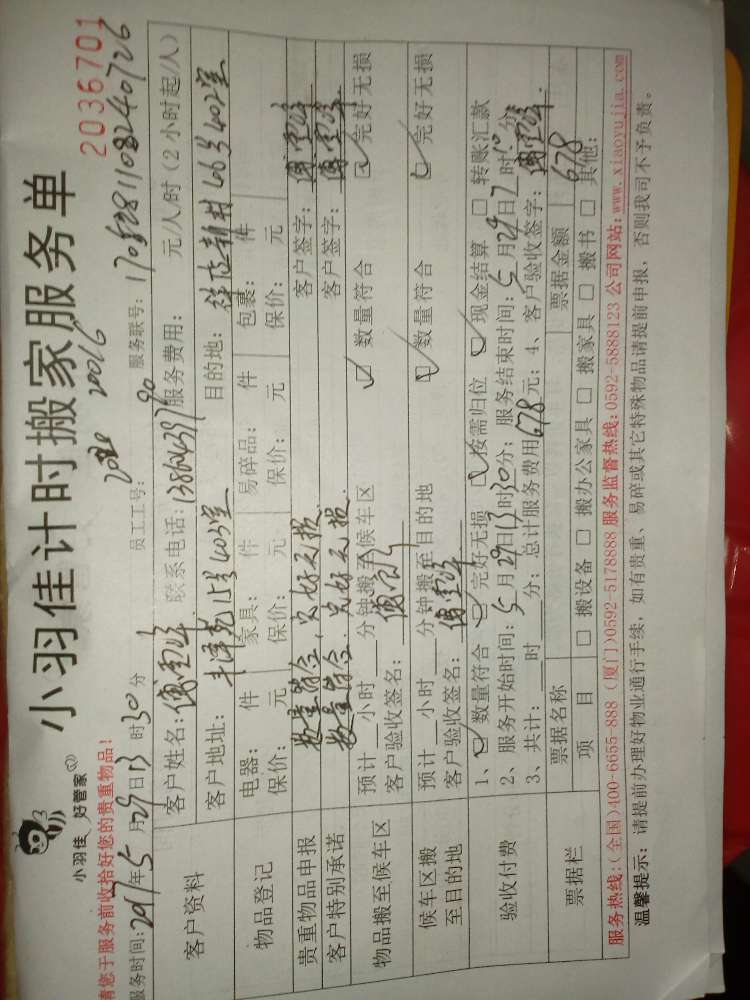 小羽佳 好管家
小羽佳计时搬家服务单
2036701
请您于服务前收拾好您的贵重物品!
20026
服务时间: 年5月29日13时30分 员工工号: 服务联号: 1705281108240726
客户资料
客户姓名: 联系电话: 服务费用: 90 元/人/时(2小时起/人)
客户地址: 15号403室 目的地: 66号402室
物品登记
电器: 件 家具: 件 易碎品: 件 包裹: 件
保价: 元 保价: 元 保价: 元 保价: 元
贵重物品申报 数量符合,完好无损 客户签字:
客户特别承诺 数量符合,完好无损. 客户签字:
物品搬至候车区
预计 小时 分钟搬至候车区 数量符合 完好无损
客户验收签名:
候车区搬至目的地
预计 小时 分钟搬至目的地 数量符合 完好无损
客户验收签名:
验收付费
1、 数量符合 完好无损 按需归位 现金结算 转账汇款
2、服务开始时间: 5月29日13时30分; 服务结束时间: 5月29日 时 分
3、共计: 时 分; 总计服务费用678元; 4、客户验收签字:
票据栏
票据名称 票据金额 678
项目 搬设备 搬办公家具 搬家具 搬书 其他:
服务热线:(全国)400-6655-888 (厦门)0592-5178888 服务监督热线:0592-5888123 公司网站:www.xiaoyujia.com
温馨提示: 请提前办理好物业通行手续, 如有贵重、易碎或其它特殊物品请提前申报, 否则我司不予负责。